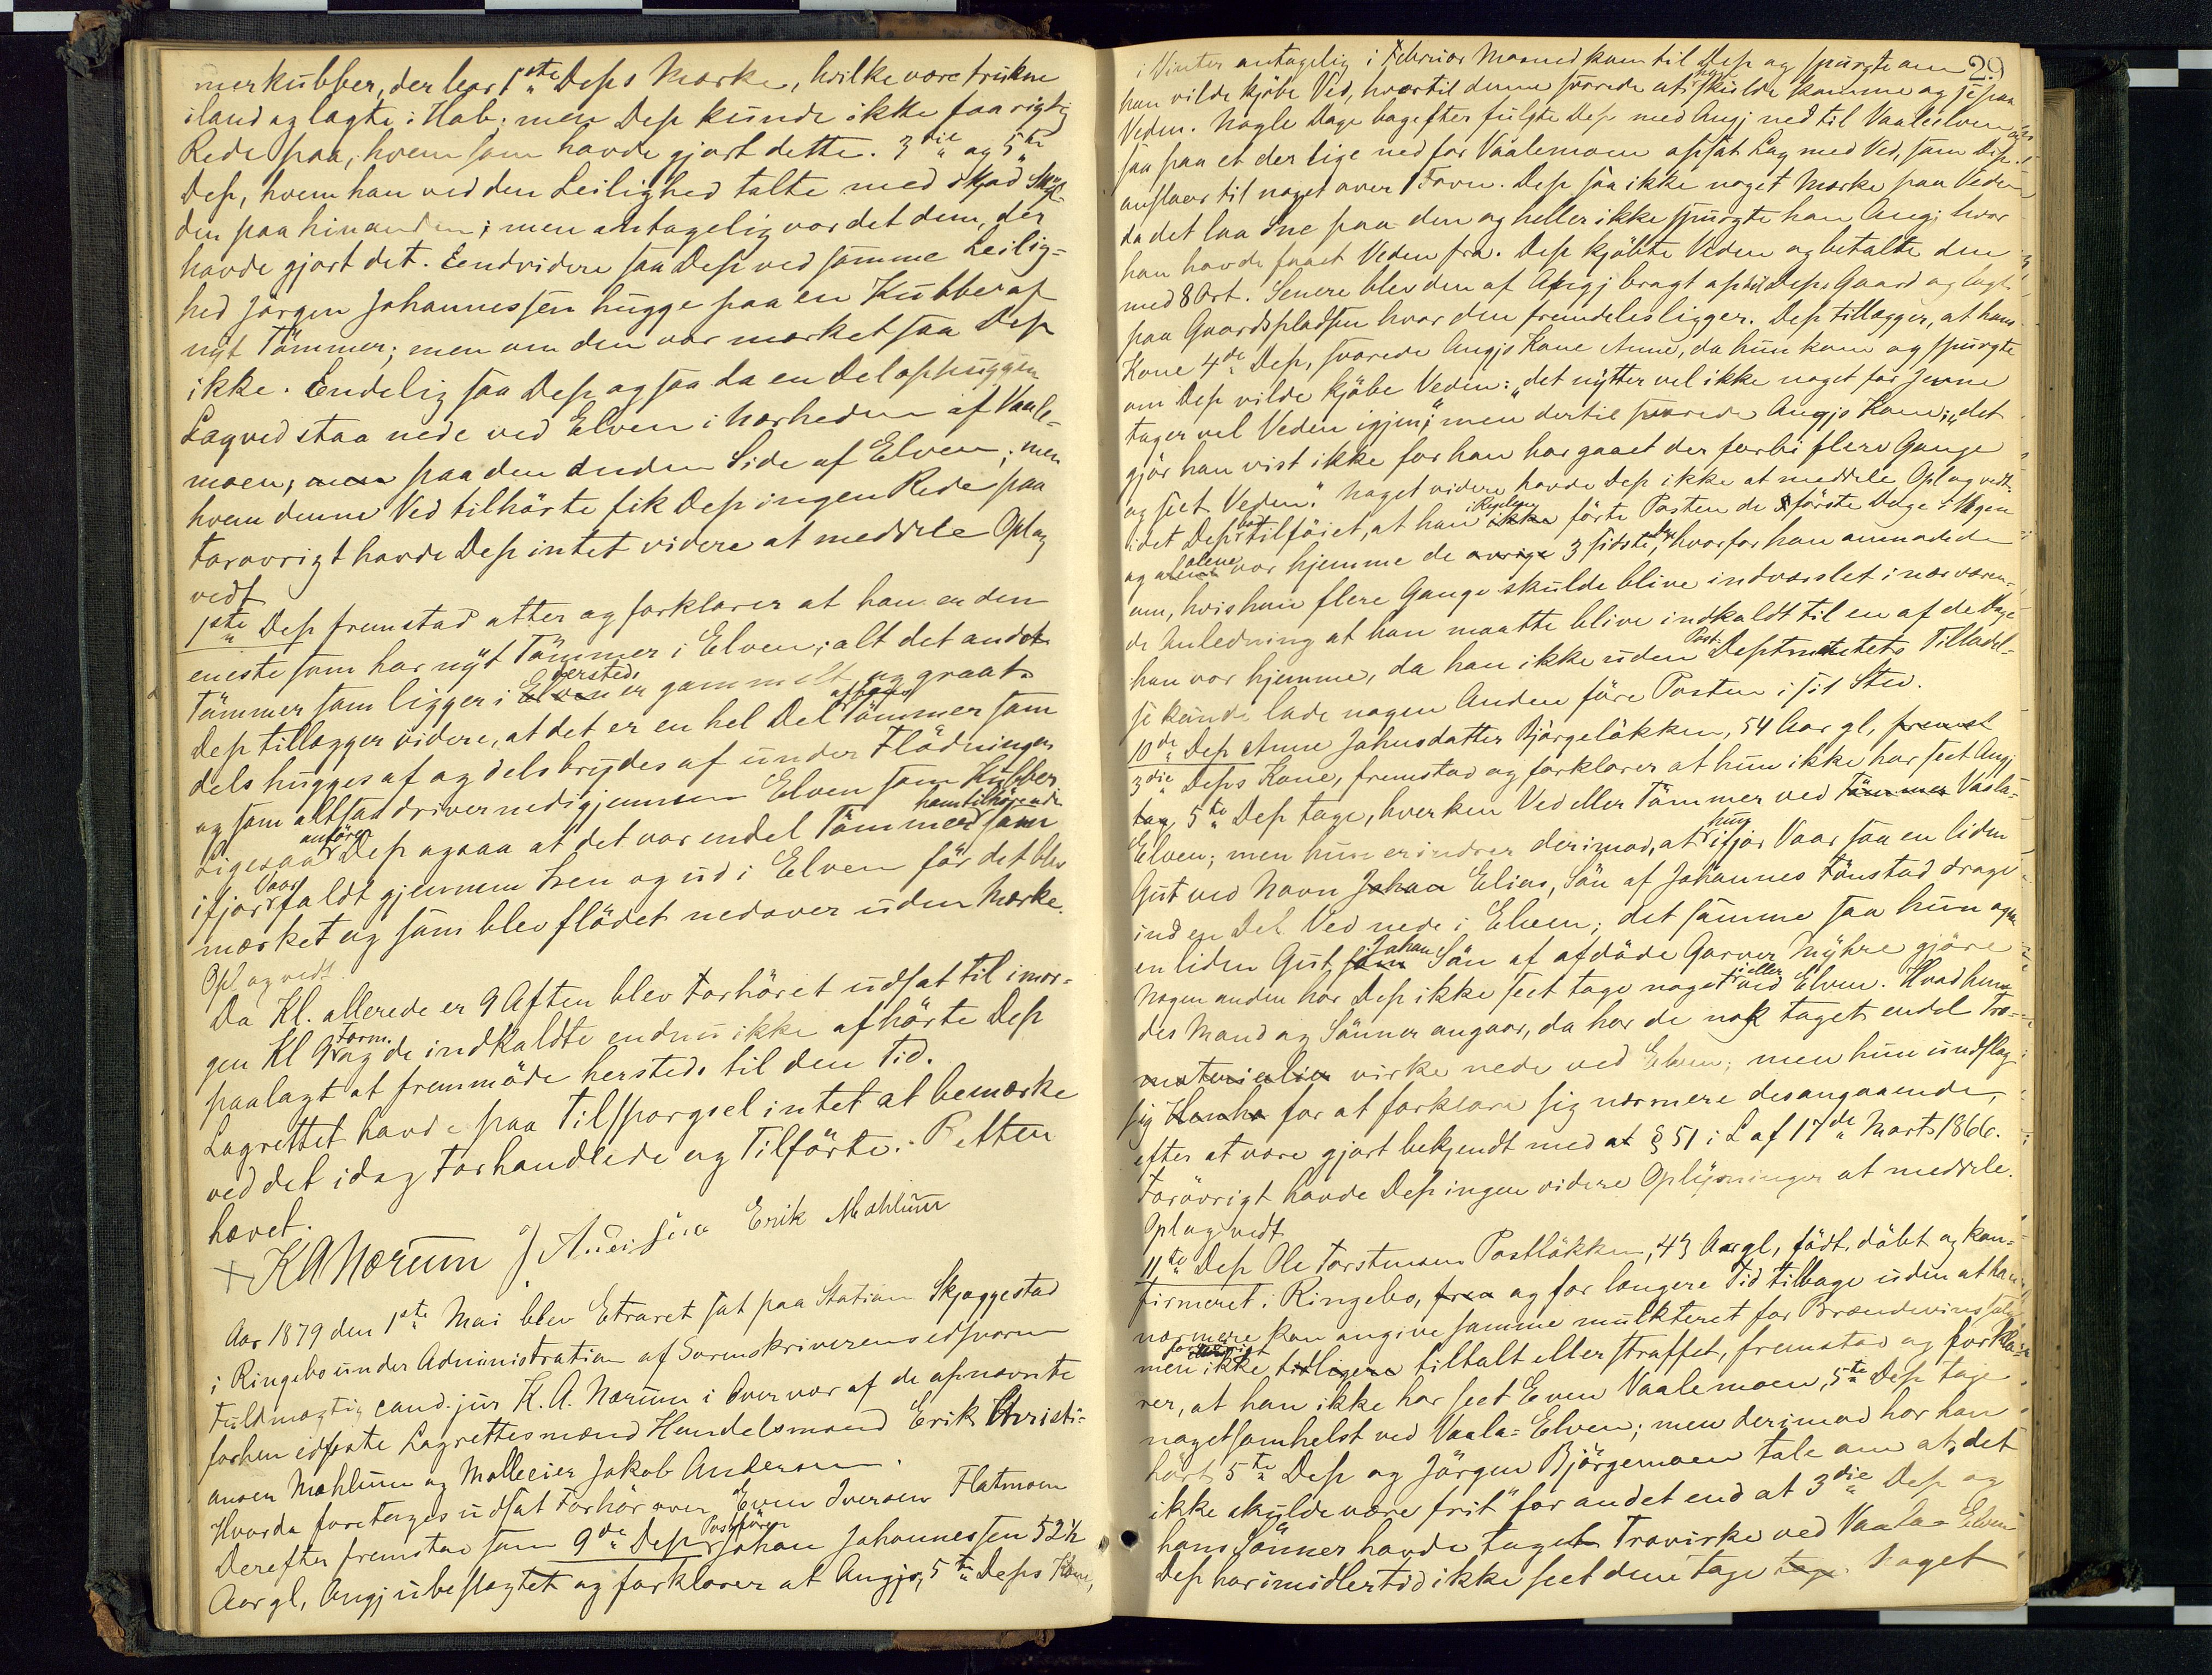 merkubber, der bar 1ste Deps Mærke, hvilke vare trukne
iland og lagte i Hob; men Dep kunde ikke faa rigtig
Rede paa, hvem som havde gjort dette. 3die og 5te
Dep, hvem han ved den Leilighed talte med skjød Skyl-
den paa hinanden; men antagelig var det dem, der
havde gjort det. Eendvidere saa Dep ved samme Leilig=
hed Jörgen Johannessen hugge paa en Kubbe af
nyt Tömmer; men om den var mærket saa Dep
ikke. Endelig saa Dep ogsaa da en Del ophuggen
Lagved staa nede ved Elven i Nærheden af Vaale=
moen, men paa den anden Side af Elven; men
hvem denne Ved tilhörte fik Dep ingen Rede paa
Forövrigt havde Dep intet videre at meddele Opl og
vedt
1ste Dep fremstod atter og forklarer at han er den
eneste som har nyt Tömmer i Elven; alt det andet
Tömmer som ligger i Elven dersteds er gammelt og graat.
Dep tillægger videre, at det er en hel Del af hans Tömmer som
dels hugges af og dels brydes af under Flödningen
og som altsaa driver nedigjennem Elven som Kubber
Ligesaa anförer Dep ogsaa at det var endel Tömmer ham tilhörende som
ifjor Vaar faldt gjennem Isen og ud i Elven för det blev
mærket og som blev flödet nedover uden Mærke.
Opl og vedt.
Da Kl. allerede er 9 Aften blev Forhöret udsat til imor=
gen Kl 9 Form. og de indkaldte endnu ikke afhörte Dep
paalagt at fremmöde hersteds til den Tid.
Lagrettet havde paa Tilspørgsel intet at bemærke
ved det idag Forhandlede og Tilförte. Retten
hævet.
K A Nærum J Andersen Erik Mæhlum
Aar 1879 den 1ste Mai blev Extraret sat paa Station Skjæggestad
i Ringebo under Administration af Sorenskriverens edsvorne
Fuldmægtig cand. jur K. A. Nærum i Overvær af de opnævnte
forhen edfæste Lagrettesmænd Handelsmand Erik Christi=
ansen Mæhlum og Møllerier Jakob Andersen.
Hvorda foretoges udsat Forhör over Even Iversen Flatmoen
Derefter fremstod som 9de Dep Postförer Johan Johannessen 52½
Aar gl, Angj ubeslægtet og forklarer at Angjs, 5te Deps Kone,
29
i Vinter antagelig i Februar Maaned kom til Dep og spurgte om
han vilde kjöbe Ved, hvortil denne svarede at han skulde komme og se paa
Veden. Nogle Dage bagefter fulgte Dep med Angj ned til Vaaleelven og
saa paa et der lige ned for Vaalemoen opsat Lag med Ved, som Dep
anslaar til noget over 1 Favn. Dep saa ikke noget Mærke paa Veden
da det laa Sne paa den og heller ikke spurgte han Angj hvor
han havde faaet Veden fra. Dep kjöbte Veden og betalte den
med 8 Ort. Senere blev den af Angj bragt op til Deps Gaard og lagt
paa Gaardspladsen hvor den fremdeles ligger. Dep tillægger, at hans
Kone 4de Dep, svarede Angjs Kone Anne, da hun kom og spurgte
om Dep vilde kjöbe Veden: "det nytter vel ikke noget for Jenne
tager vel Veden igjen"; men dertil svarede Angjs Kone: "det
gjör han vist ikke for han har gaaet der forbi flere Gange
og seet Veden." Noget videre havde Dep ikke at meddele Opl og vedt.
idet Dep tilföiet, at han i Regelen ikke förte Posten de 3 förste Dage i Ugen
og alene var hjemme de övrige 3 sidste, hvorfor han anmodede
om, hvis han flere Gange skulde blive indvarslet i nærværen=
de Anledning at han maatte blive indkaldt til en af de Dage
han var hjemme, da han ikke uden Post Deptmtets Tilladel=
se kunde lade nogen Anden före Posten i sit Sted.
10de Dep Anne Johnsdatter Björgelökken, 54 Aar gl, fremst
3die Deps Kone, fremstod og forklarer at hun ikke har seet Angj
tag, 5te Dep tage, hverken Ved eller Tömmer ved Tömmer Vaala=
Elven; men hun erindrer derimod, at hun ifjor Vaar saa en liden
Gut ved Navn Johan Elias, Sön af Johannes Tönstad drage
ind en Del Ved nede i Elven; det samme saa hun ogsaa
en liden Gut, som Johan Sön af afdöde Garver Myhre gjöre
Nogen anden har Dep ikke seet tage noget i eller ved Elven. Hvad hen=
des Mand og Sönner angaar, da har de nok taget endel Træ=
materialier virke nede ved Elven; men hun undslog
sig Han ha for at forklare sig nærmere desangaaende,
efter at være gjort bekjendt med at § 51 i L af 17de Marts 1866.
Forövrigt havde Dep ingen videre Oplysninger at meddele.
Opl og vedt
11te Dep Ole Torstensen Postlökken, 43 Aar gl, födt, döbt og kon=
firmeret i Ringebo, fra og for længere Tid tilbage uden at han
nærmere kan angive samme mulkteret for Brændevinssalg
men forövrigt ikke tidligere tiltalt eller straffet, fremstod og forkla=
rer, at han ikke har seet Even Vaalemoen, 5te Dep tage
nogetsomhelst ved Vaala=Elven; men derimod har han
hört 5te Dep og Jörgen Björgemoen tale om at "det
ikke skulde være frit" for andet end at 3die Dep og
hans Sönner havde taget Trævirke ved Vaala=Elven
Dep har imidlertid ikke seet dem tage tage. Noget